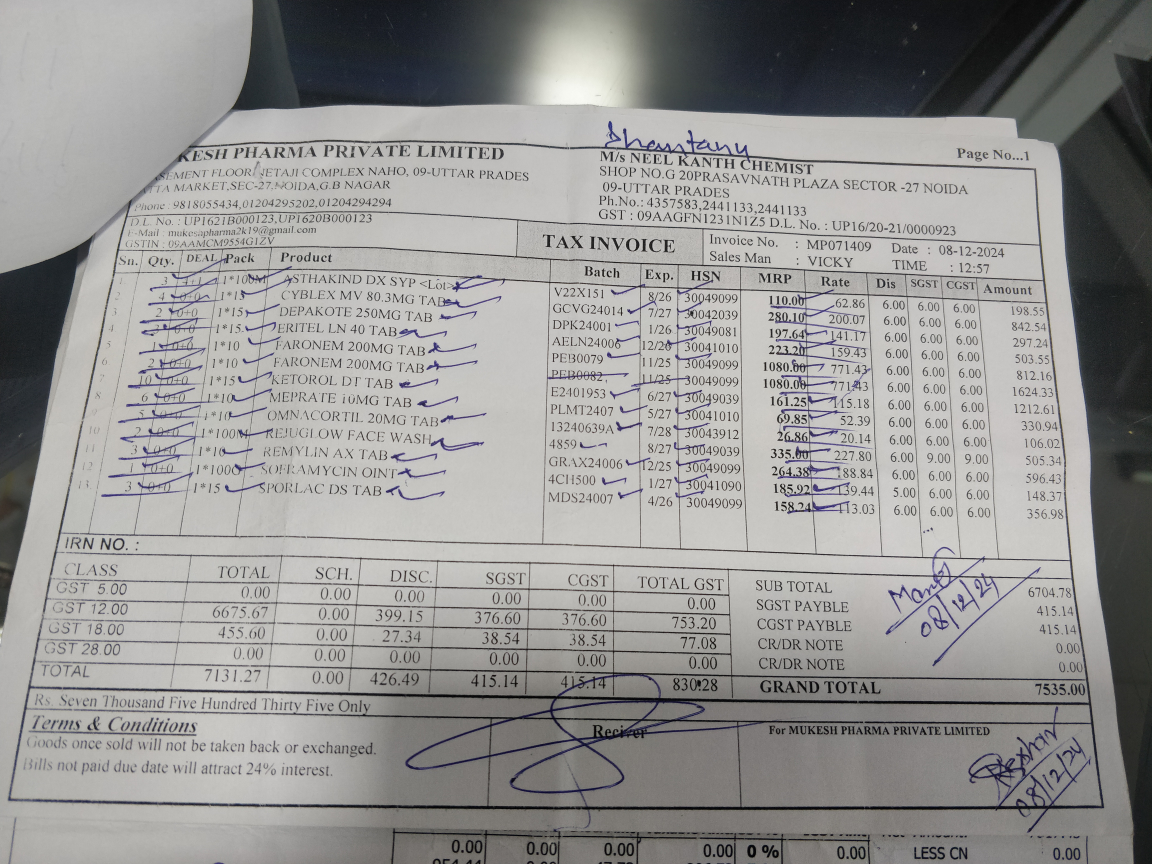 Shantanu
KESH PHARMA PRIVATE LIMITED
ASEMENT FLOOR, NETAJI COMPLEX NAHO, 09-UTTAR PRADES
TTA MARKET,SEC-27,NOIDA,G.B NAGAR
Phone : 9818055434,01204295202,01204294295
D.L. No. : UP1621B000123,UP1620B000123
E-Mail : mukesapharma2k19@gmail.com
GSTIN : 09AAMCM9554G1ZV
Page No...1
M/s NEEL KANTH CHEMIST
SHOP NO.G 20PRASAVNATH PLAZA SECTOR -27 NOIDA
09-UTTAR PRADES
Ph.No.: 4357583,2441133,2441133
GST : 09AAGFN1231N1Z5 D.L. No. : UP16/20-21/0000923
TAX INVOICE
Invoice No. : MP071409 Date : 08-12-2024
Sales Man : VICKY TIME : 12:57
Sn. Qty. DEAL Pack Product Batch Exp. HSN MRP Rate Dis SGST CGST Amount
1 3 4+1 1*100M ASTHAKIND DX SYP <Lot> V22X151 8/26 30049099 110.00 62.86 6.00 6.00 6.00 198.55
2 4 0+0 1*15 CYBLEX MV 80.3MG TAB GCVG24014 7/27 30042039 280.10 200.07 6.00 6.00 6.00 842.54
3 2 0+0 1*15 DEPAKOTE 250MG TAB DPK24001 1/26 30049081 197.64 141.17 6.00 6.00 6.00 297.24
4 3 0+0 1*15 ERITEL LN 40 TAB AELN24006 12/26 30041010 223.20 159.43 6.00 6.00 6.00 503.55
5 1 0+0 1*10 FARONEM 200MG TAB PEB0079 11/25 30049099 1080.00 771.43 6.00 6.00 6.00 812.16
2 0+0 1*10 FARONEM 200MG TAB PEB0082 11/25 30049099 1080.00 771.43 6.00 6.00 6.00 1624.33
7 10 0+0 1*15 KETOROL DT TAB E2401953 6/27 30049039 161.25 115.18 6.00 6.00 6.00 1212.61
8 6 0+0 1*10 MEPRATE 10MG TAB PLMT2407 5/27 30041010 69.85 52.39 6.00 6.00 6.00 330.94
9 5 0+0 1*10 OMNACORTIL 20MG TAB 13240639A 7/28 30043912 26.86 20.14 6.00 6.00 6.00 106.02
10 2 0+0 1*100M REJUGLOW FACE WASH 4859 8/27 30049039 335.00 227.80 6.00 9.00 9.00 505.34
11 3 0+0 1*10 REMYLIN AX TAB GRAX24006 12/25 30049099 264.38 188.84 6.00 6.00 6.00 596.43
12 1 0+0 1*100G SOFRAMYCIN OINT 4CH500 1/27 30041090 185.92 139.44 5.00 6.00 6.00 148.37
13 3 0+0 1*15 SPORLAC DS TAB MDS24007 4/26 30049099 158.24 113.03 6.00 6.00 6.00 356.98
...
IRN NO. :
CLASS TOTAL SCH. DISC. SGST CGST TOTAL GST
GST 5.00 0.00 0.00 0.00 0.00 0.00 0.00
GST 12.00 6675.67 0.00 399.15 376.60 376.60 753.20
GST 18.00 455.60 0.00 27.34 38.54 38.54 77.08
GST 28.00 0.00 0.00 0.00 0.00 0.00 0.00
TOTAL 7131.27 0.00 426.49 415.14 415.14 830.28
SUB TOTAL 6704.78
SGST PAYBLE 415.14
CGST PAYBLE 415.14
CR/DR NOTE 0.00
CR/DR NOTE 0.00
GRAND TOTAL 7535.00
08/12/24
Rs. Seven Thousand Five Hundred Thirty Five Only
Terms & Conditions
Goods once sold will not be taken back or exchanged.
Bills not paid due date will attract 24% interest.
Reciver
For MUKESH PHARMA PRIVATE LIMITED
08/12/24
0.00 0.00 0.00 0 % 0.00 LESS CN 0.00